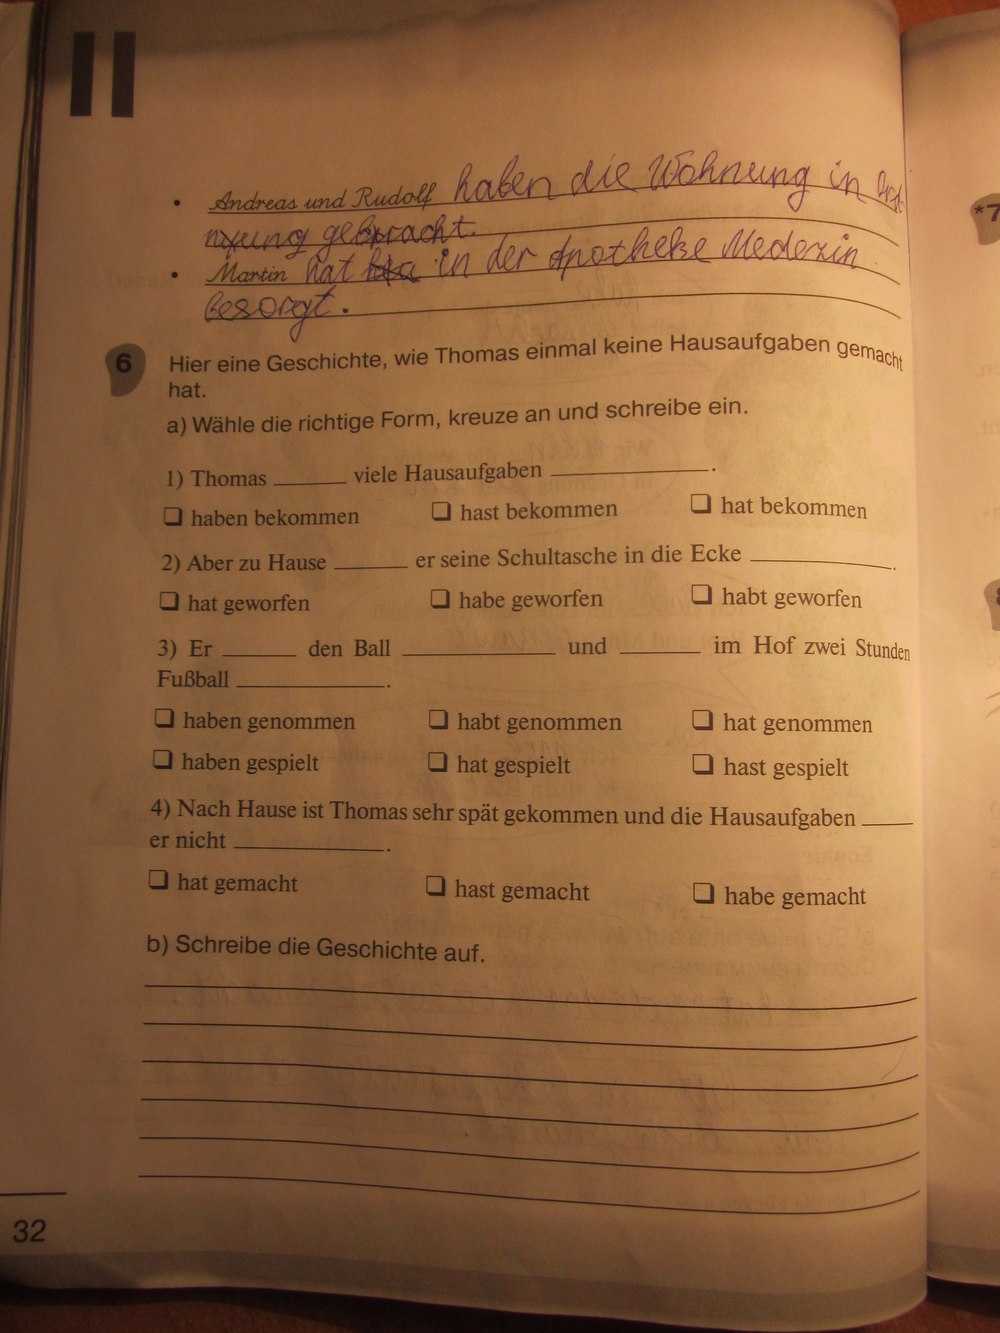 II
• Andreas und Rudolf haben die Wohnung in Ord-
nung gebracht.
• Martin hat in der Apotheke Mederzin
besorgt.
6 Hier eine Geschichte, wie Thomas einmal keine Hausaufgaben gemacht
hat.
a) Wähle die richtige Form, kreuze an und schreibe ein.
1) Thomas ______ viele Hausaufgaben ______________.
❏ haben bekommen ❏ hast bekommen ❏ hat bekommen
2) Aber zu Hause ______ er seine Schultasche in die Ecke ____________.
❏ hat geworfen ❏ habe geworfen ❏ habt geworfen
3) Er ______ den Ball ____________ und ______ im Hof zwei Stunden
Fußball ____________.
❏ haben genommen ❏ habt genommen ❏ hat genommen
❏ haben gespielt ❏ hat gespielt ❏ hast gespielt
4) Nach Hause ist Thomas sehr spät gekommen und die Hausaufgaben ____
er nicht ____________.
❏ hat gemacht ❏ hast gemacht ❏ habe gemacht
b) Schreibe die Geschichte auf.
32
*7